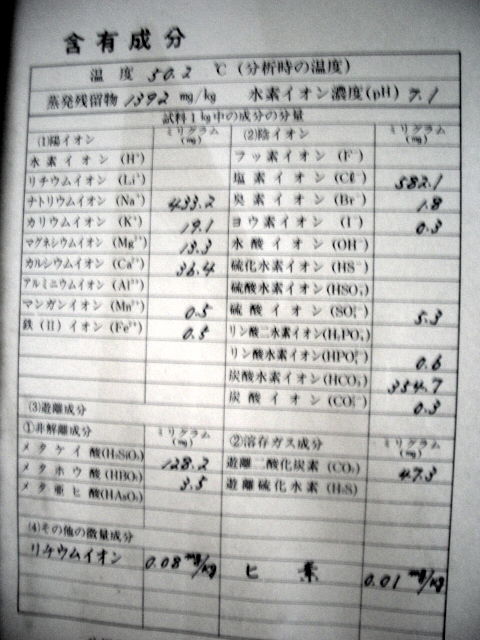 含有成分
温度 50.2 ℃(分析時の温度)
蒸発残留物 1392 mg/kg 水素イオン濃度(pH) 7.1
試料1kg中の成分の分量
(1)陽イオン ミリグラム(mg) (2)陰イオン ミリグラム(mg)
水素イオン(H⁺) フッ素イオン(F⁻)
リチウムイオン(Li⁺) 塩素イオン(Cl⁻) 582.1
ナトリウムイオン(Na⁺) 433.2 臭素イオン(Br⁻) 1.8
カリウムイオン(K⁺) 19.1 ヨウ素イオン(I⁻) 0.3
マグネシウムイオン(Mg²⁺) 13.3 水酸イオン(OH⁻)
カルシウムイオン(Ca²⁺) 36.4 硫化水素イオン(HS⁻)
アルミニウムイオン(Al³⁺) 硫酸水素イオン(HSO₄⁻)
マンガンイオン(Mn²⁺) 0.5 硫酸イオン(SO₄²⁻) 5.3
鉄(II)イオン(Fe²⁺) 0.5 リン酸二水素イオン(H₂PO₄⁻)
リン酸水素イオン(HPO₄²⁻) 0.6
炭酸水素イオン(HCO₃⁻) 354.7
炭酸イオン(CO₃²⁻) 0.3
(3)遊離成分
①非解離成分 ミリグラム(mg) ②溶存ガス成分 ミリグラム(mg)
メタケイ酸(H₂SiO₃) 128.2 遊離二酸化炭素(CO₂) 47.3
メタホウ酸(HBO₂) 3.5 遊離硫化水素(H₂S)
メタ亜ヒ酸(HAsO₂)
(4)その他の微量成分
リチウムイオン 0.08 mg/kg ヒ素 0.01 mg/kg